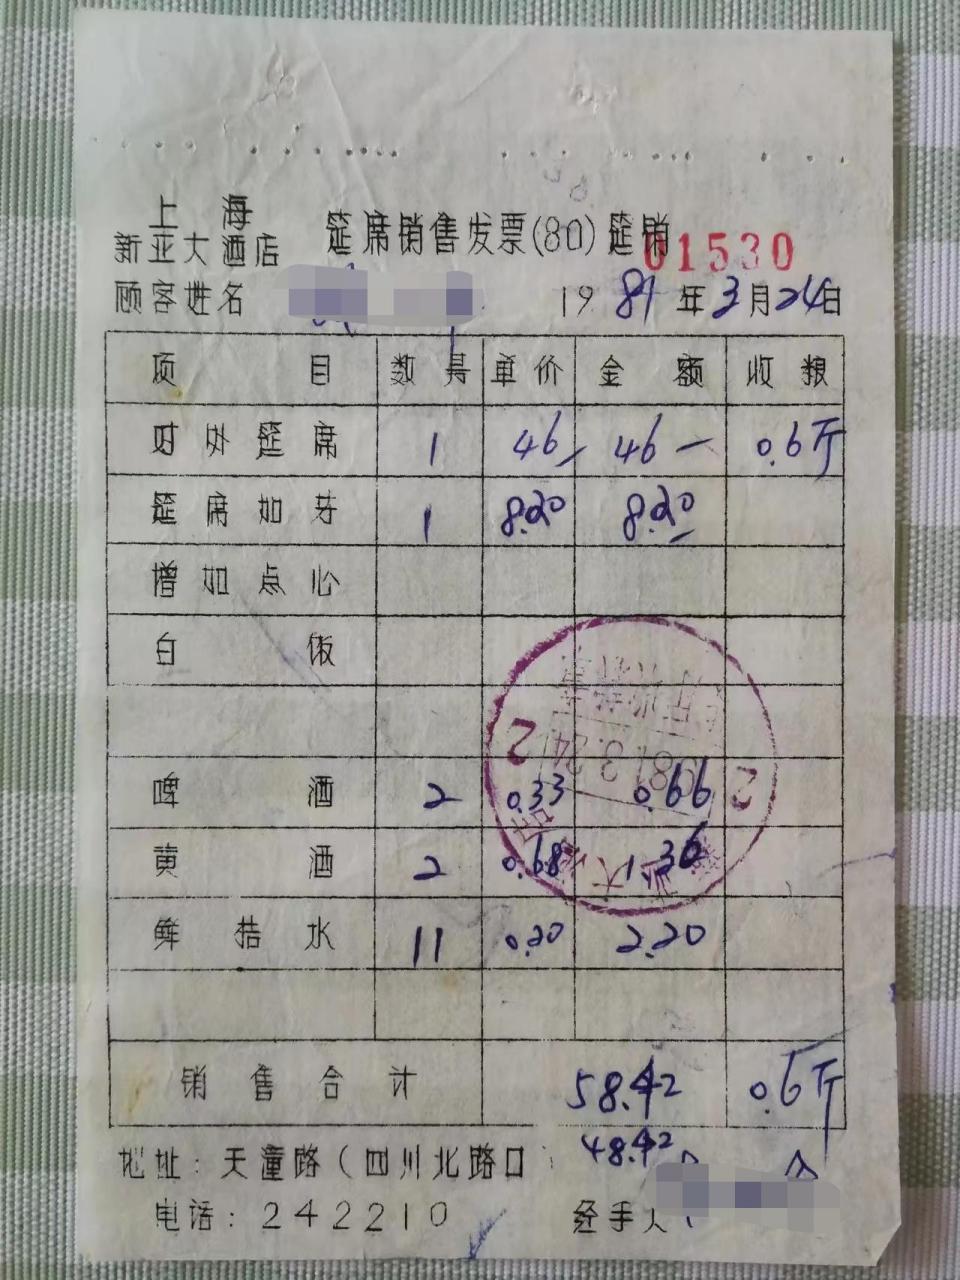 上海
新亚大酒店 筵席销售发票(80)筵销 01530
顾客姓名 1981年3月24日
项目 数量 单价 金额 收粮
对外筵席 1 46— 46— 0.6斤
筵席加芽 1 8.20 8.20
增加点心
白饭
啤酒 2 0.33 0.66
黄酒 2 0.68 1.36
鲜桔水 11 0.20 2.20
销售合计 58.42 0.6斤
48.42
地址:天潼路(四川北路口)
电话:242210 经手人